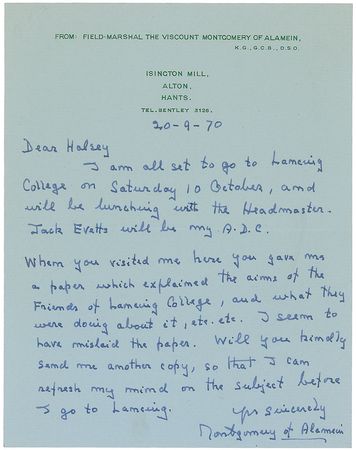 FROM: FIELD-MARSHAL THE VISCOUNT MONTGOMERY OF ALAMEIN,
K.G., G.C.B., D.S.O.
ISINGTON MILL,
ALTON,
HANTS.
TEL. BENTLEY 3126.
20-9-70
Dear Halsey
I am all set to go to Lancing
College on Saturday 10 October, and
will be lunching with the Headmaster.
Jack Evatts will be my A.D.C.
When you visited me here you gave me
a paper which explained the aims of the
Friends of Lancing College, and what they
were doing about it, etc. etc. I seem to
have mislaid the paper. Will you kindly
send me another copy, so that I can
refresh my mind on the subject before
I go to Lancing.
Yrs sincerely
Montgomery of Alamein